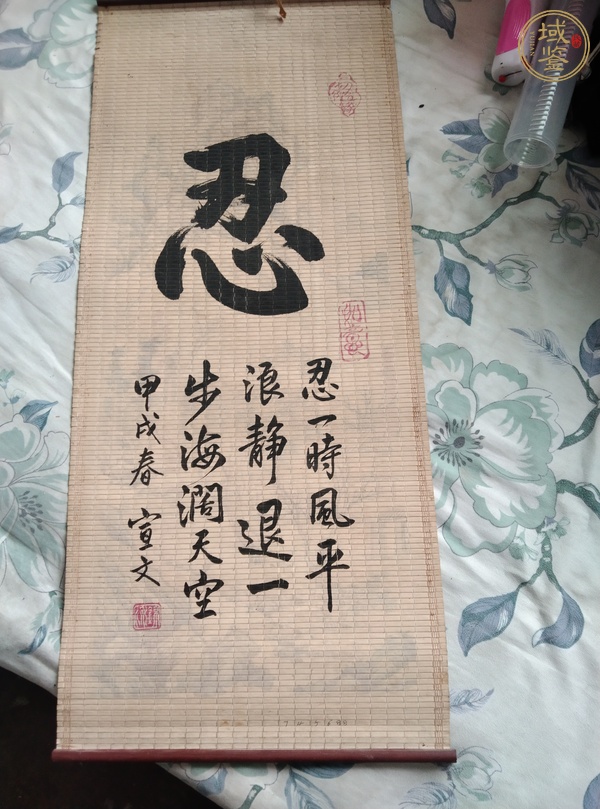 忍
忍一時風平
浪静退一
步海濶天空
甲戍春 宣文
域鉴